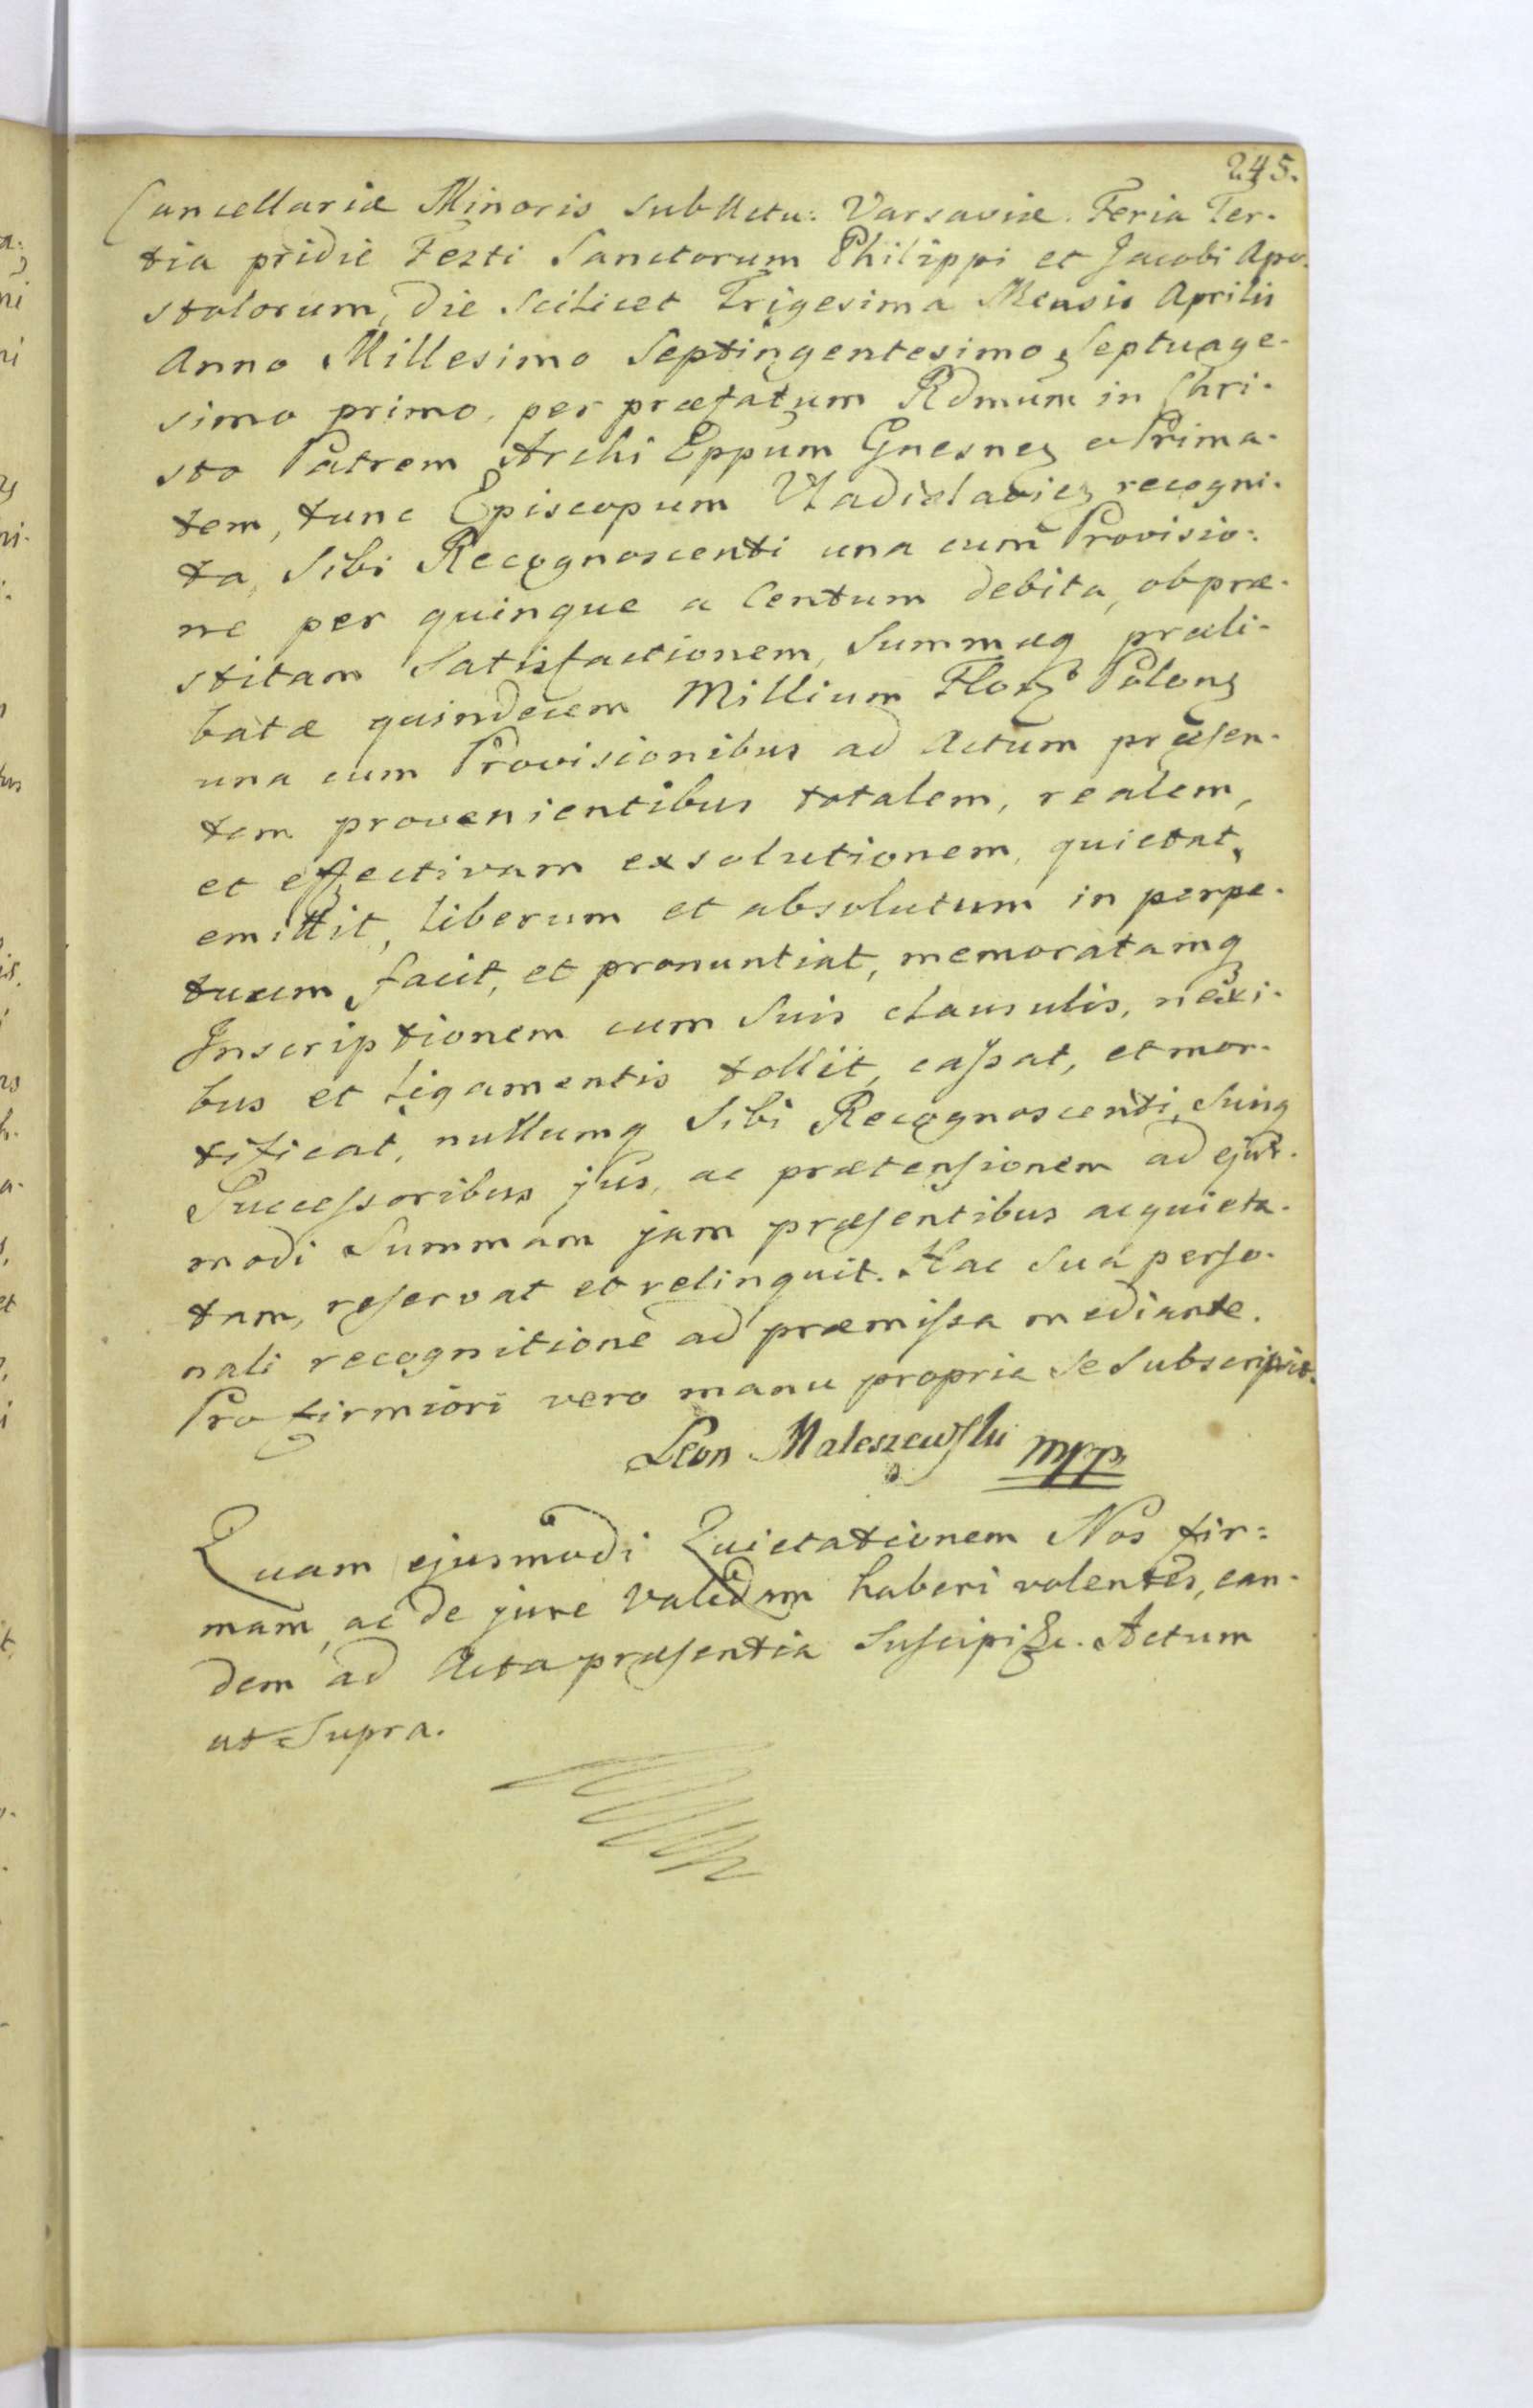 245.
Cancellariæ Minoris sub Actu: Varsaviæ. Feria Ter-
tia pridie Festi Sanctorum Philippi et Jacobi Apo-
stolorum, die Scilicet Trigesima Mensis Aprilis
Anno Millesimo Septingentesimo Septuage-
simo primo. per præfatum Rdmum in Chri-
sto Patrem Archi Eppum Gnesnen et Prima-
tem, tunc Episcopum Vladislavien recogni-
ta, Sibi Recognoscenti una cum Provisio-
ne per quinque a Centum debita, ob præ-
stitam Satisfactionem, Summæq præli-
batæ quindecem Millium Flor Polon
una cum Provisionibus ad Actum præsen-
tem provenientibus totalem, realem,
et effectivam exsolutionem, quietat,
emittit, liberum et absolutum in perpe-
tuum facit, et pronuntiat, memoratamq
Inscriptionem cum Suis clausulis, nexi-
bus et ligamentis tollit, cassat, et mor-
tificat, nullumq Sibi Recognoscenti, Suisq
Successoribus jus, ac prætensionem ad ejus-
modi Summam jam præsentibus acquieta-
tam, reservat et relinquit. Hac Sua perso-
nali recognitione ad præmissa mediante.
Pro firmiori vero manu propria Se Subscripsit.
Leon Maleszewski mpp
Quam ejusmodi Quietationem Nos fir-
mam, ac de jure validam haberi volentes, ean-
dem ad Acta præsentia Suscipi &c. Actum
ut Supra.